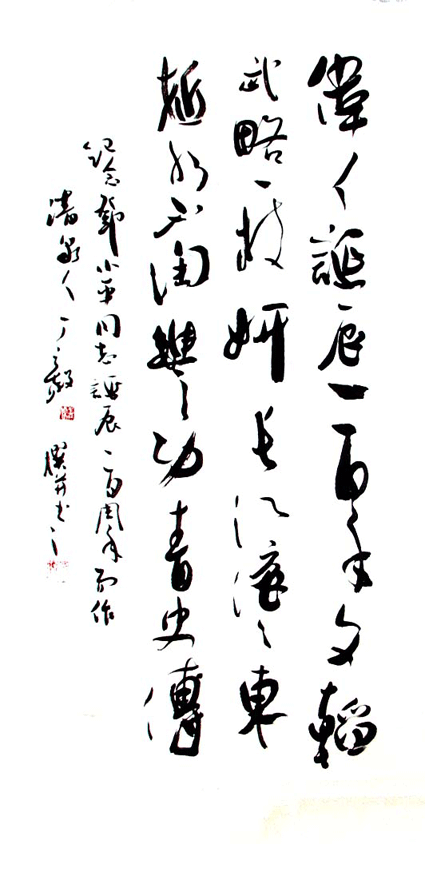 偉人誕辰一百年文韜
武略一枝妍長江滾滾東
趨水不淘豐功青史傳
紀念鄧小平同志誕辰一百周年而作
清泉人 撰并書